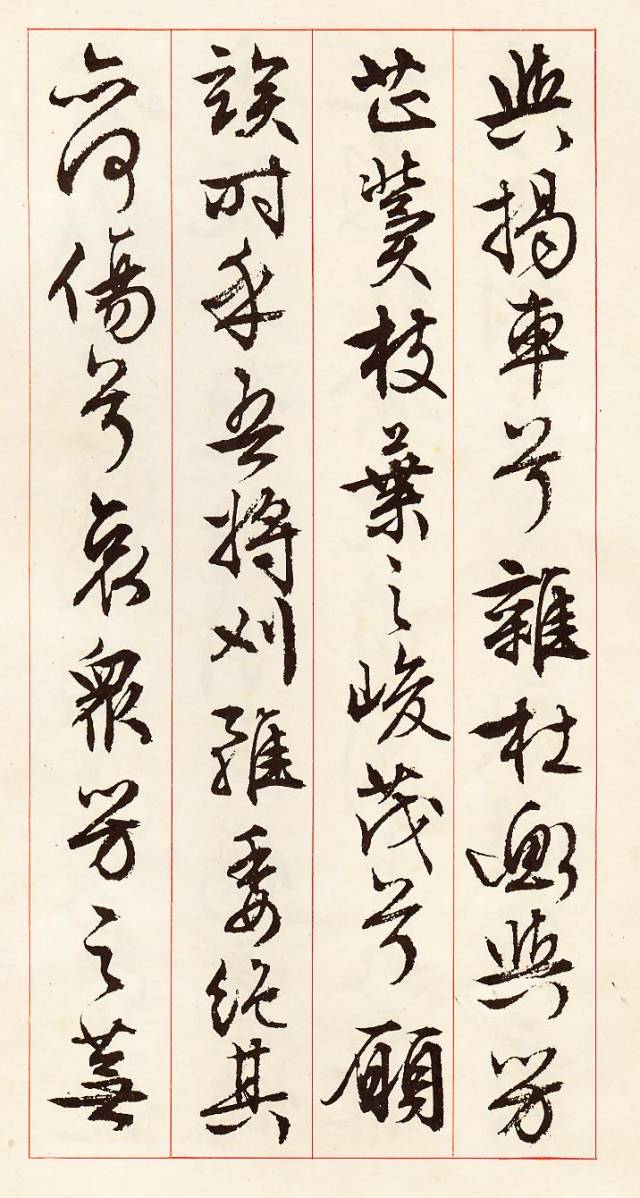 與揭車兮雜杜衡與芳
芷冀枝葉之峻茂兮願
竢时乎吾將刈雖委絕其
亦何傷兮哀眾芳之蕪